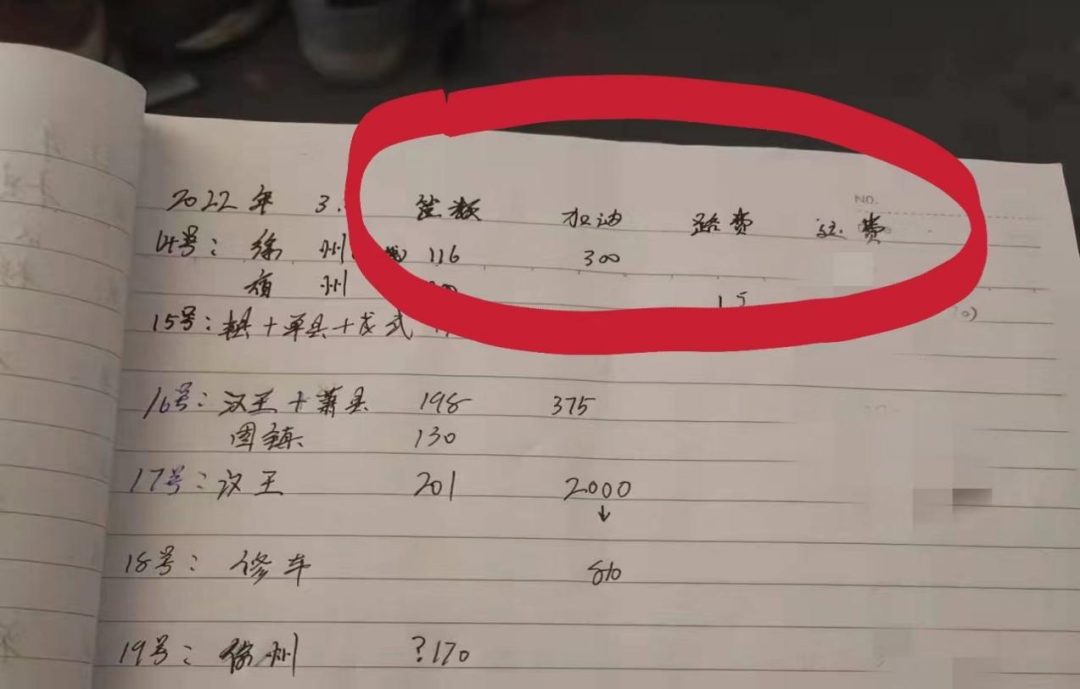 NO.
2022年 3. 筐数 加油 路费 运费
14号: 徐州 116 300
宿州 15
15号: 单县+
16号: 汉王+萧县 198 375
固镇 130
17号: 汉王 201 2000
↓
18号: 修车 810
19号: 徐州 ?170